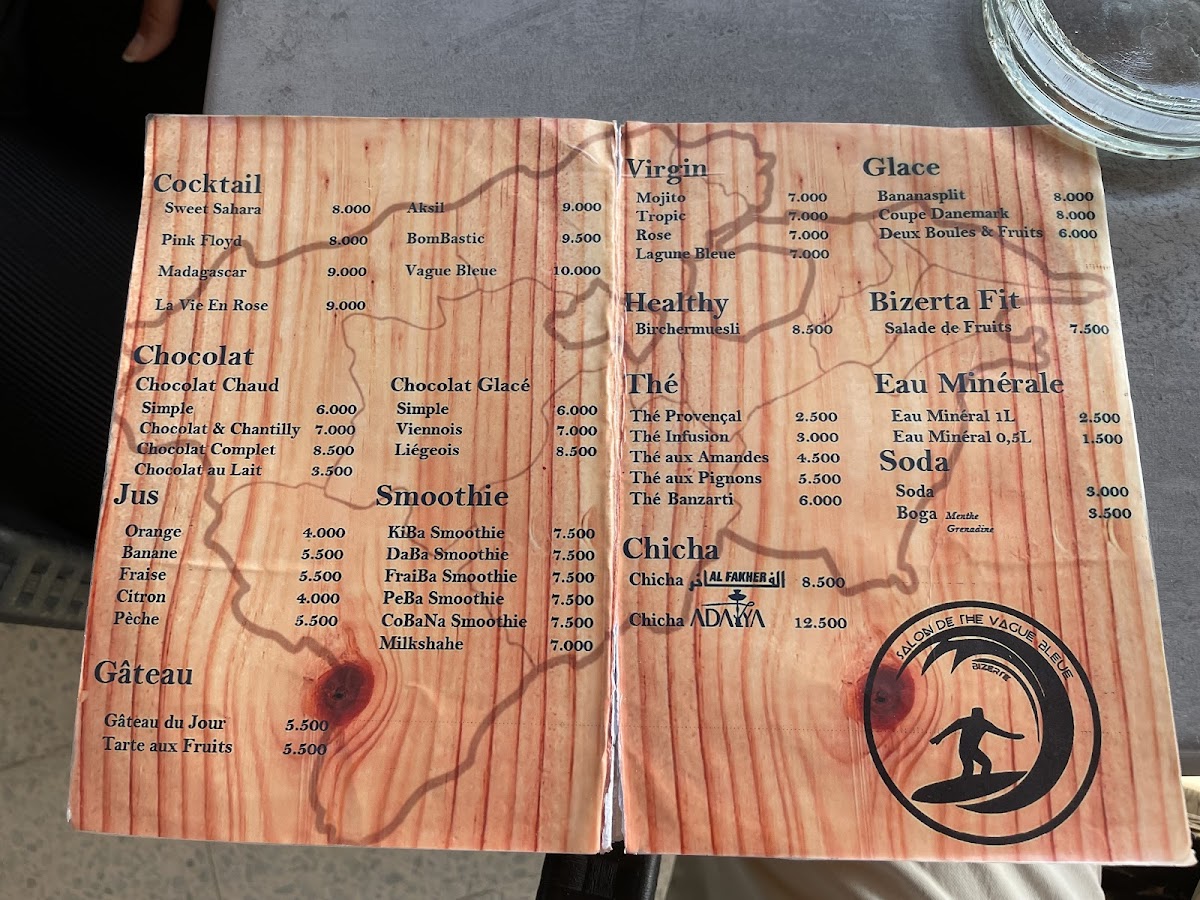 Cocktail
Sweet Sahara 8.000 Aksil 9.000
Pink Floyd 8.000 BomBastic 9.500
Madagascar 9.000 Vague Bleue 10.000
La Vie En Rose 9.000
Chocolat
Chocolat Chaud Chocolat Glacé
Simple 6.000 Simple 6.000
Chocolat & Chantilly 7.000 Viennois 7.000
Chocolat Complet 8.500 Liégeois 8.500
Chocolat au Lait 3.500
Jus Smoothie
Orange 4.000 KiBa Smoothie 7.500
Banane 5.500 DaBa Smoothie 7.500
Fraise 5.500 FraiBa Smoothie 7.500
Citron 4.000 PeBa Smoothie 7.500
Pèche 5.500 CoBaNa Smoothie 7.500
Milkshahe 7.000
Gâteau
Gâteau du Jour 5.500
Tarte aux Fruits 5.500
Virgin Glace
Mojito 7.000 Bananasplit 8.000
Tropic 7.000 Coupe Danemark 8.000
Rose 7.000 Deux Boules & Fruits 6.000
Lagune Bleue 7.000
Healthy Bizerta Fit
Birchermuesli 8.500 Salade de Fruits 7.500
Thé Eau Minérale
Thé Provençal 2.500 Eau Minéral 1L 2.500
Thé Infusion 3.000 Eau Minéral 0,5L 1.500
Thé aux Amandes 4.500 Soda
Thé aux Pignons 5.500 Soda 3.000
Thé Banzarti 6.000 Boga Menthe 3.500
Grenadine
Chicha
Chicha AL FAKHER الفاخر 8.500
Chicha ADALYA 12.500
SALON DE THE VAGUE BLEUE
BIZERTE